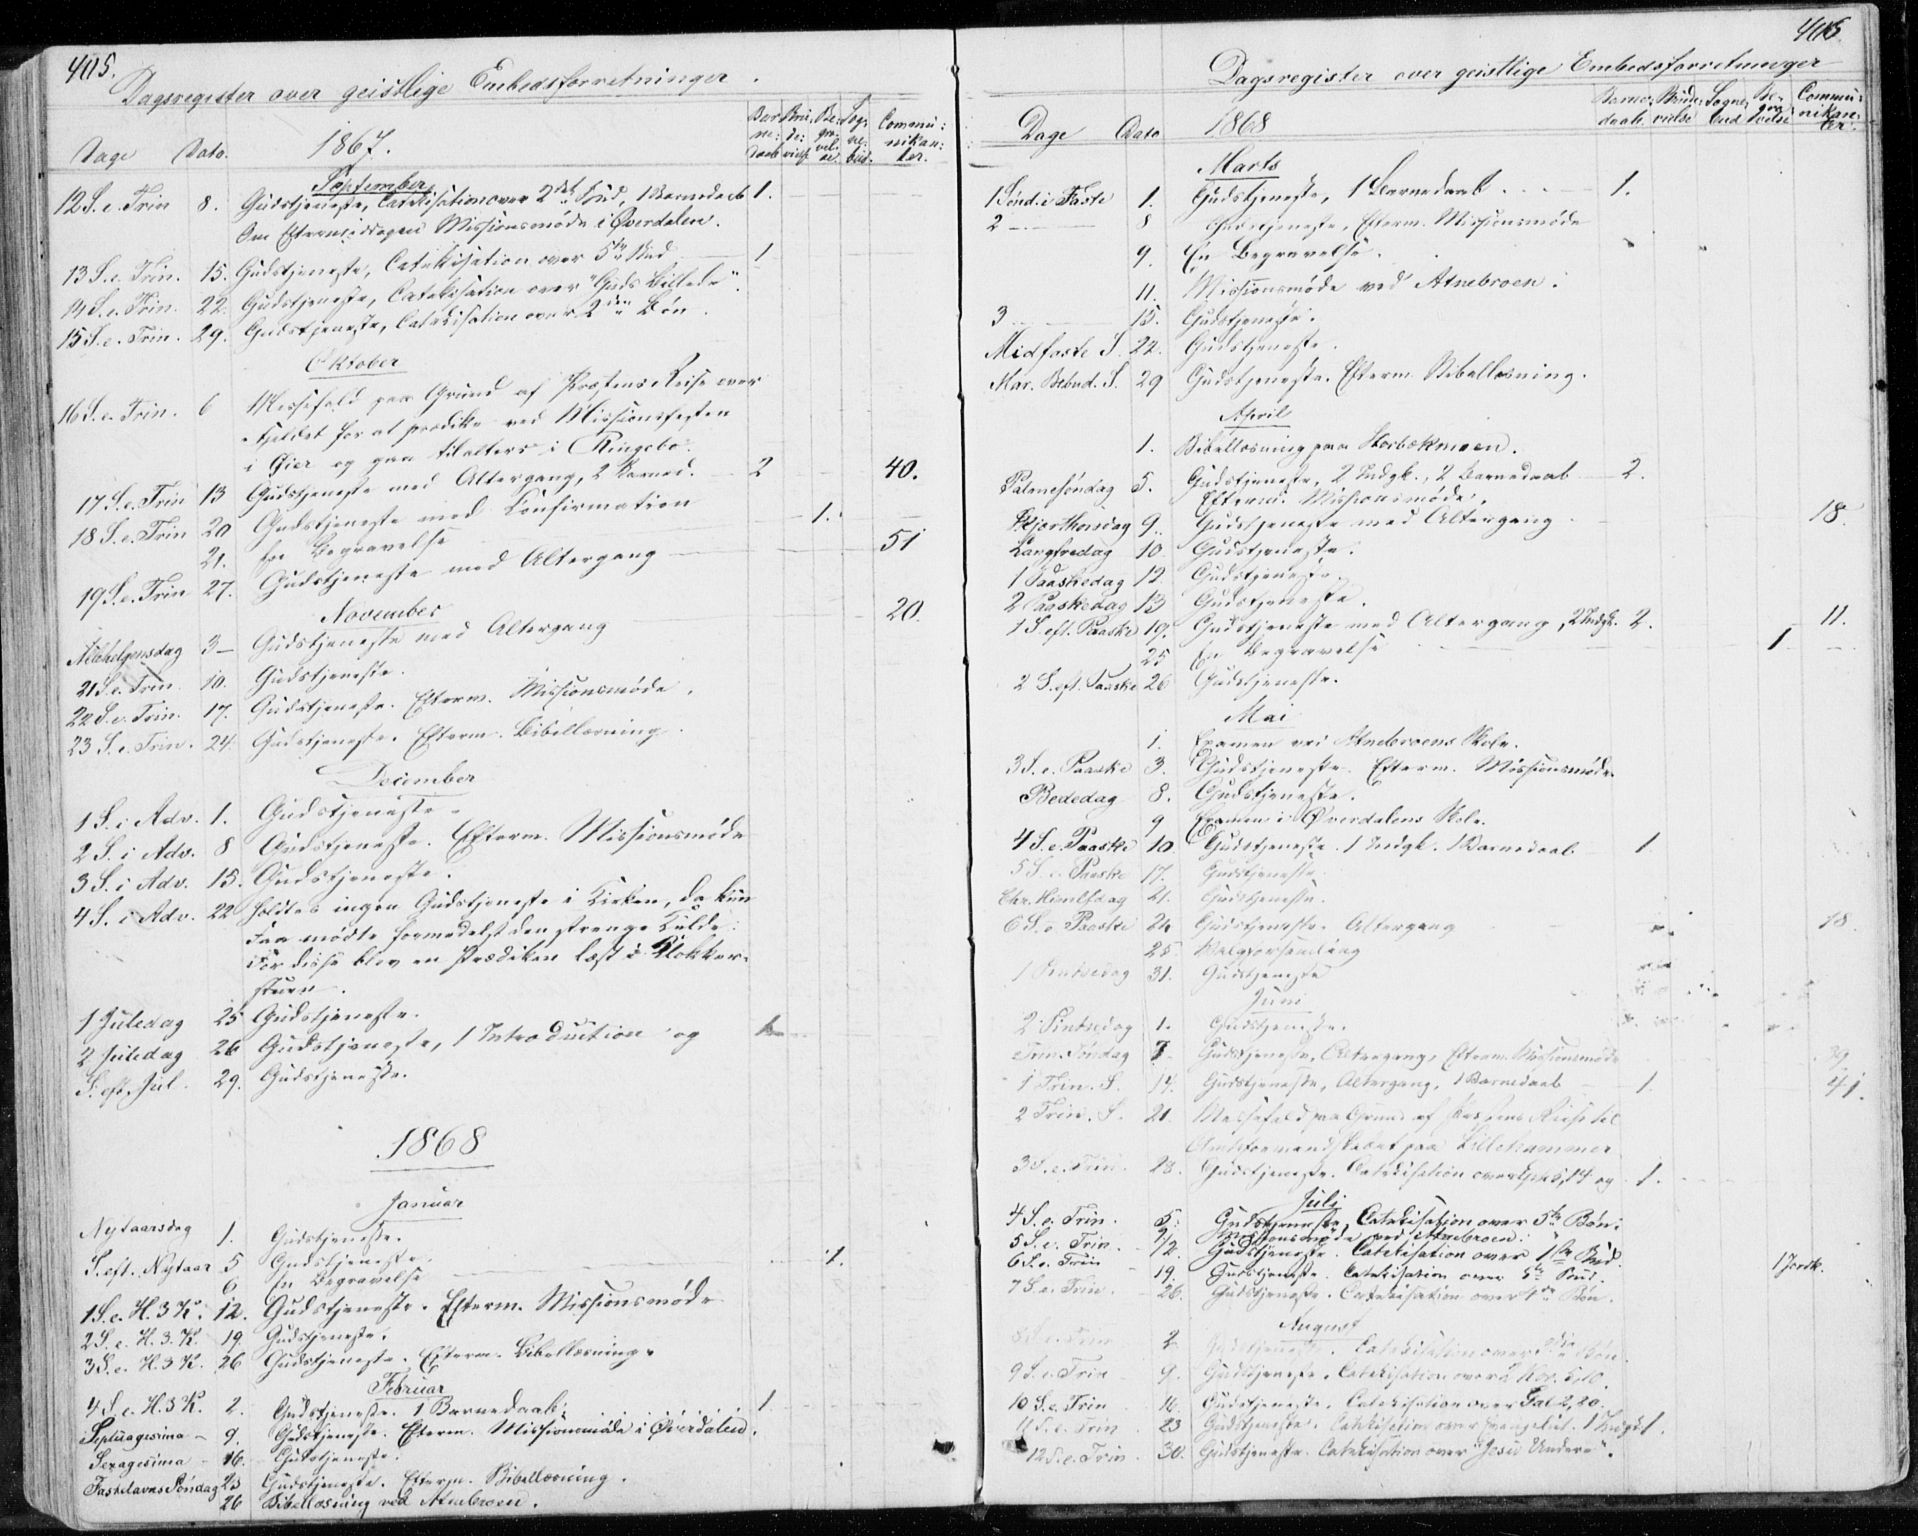 405.
Dagsregister over geistlige Embedsforretninger.
Dage Dato. 1867. Barnedaab Brudevielse Begravelse Sognebud Communikanter.
September
12 S. e. Trin 8. Gudstjeneste, Catekisation over 2det Bud, 1 Barnedaab 1.
Om Eftermiddagen Missionsmøde i Øverdalen.
13 S. e. Trin. 15. Gudstjeneste, Catekisation over 5te Bud 1
14 S. e. Trin. 22. Gudstjeneste, Catekisation over "Guds Billede".
15 S. e. Trin. 29. Gudstjeneste, Catekisation over 2den Bøn.
Oktober
16 S. e. Trin. 6 Messefald paa Grund af Præstens Reise over
Fjeldet for at prædike ved Missionsfesten
i Øier og gaa tilalters i Ringebo.
17 S. e. Trin 13 Gudstjeneste med Altergang, 2 Barned. 2 40.
18 S. e. Trin 20 Gudstjeneste med Confirmation
21. En Begravelse 1.
19 S. e. Trin 27. Gudstjeneste med Altergang 51
November
Allehelgensdag 3 Gudstjeneste med Altergang 20.
21 S. e. Trin 10. Gudstjeneste.
22 S. e. Trin. 17. Gudstjeneste. Efterm. Missionsmøde.
23 S. e. Trin. 24. Gudstjeneste. Efterm. Bibellæsning.
December
1 S. i Adv. 1. Gudstjeneste.
2 S. i Adv. 8 Gudstjeneste. Efterm. Missionsmøde
3 S. i Adv. 15. Gudstjeneste.
4 S. i Adv. 22 Holdtes ingen Gudstjeneste i Kirken, da kun
Faa mødte formedelst den strenge Kulde.
For disse blev en Prædiken læst i Klokker-
stuen.
1 Juledag 25 Gudstjeneste.
2 Juledag 26 Gudstjeneste, 1 Introduction og 1
S. eft. Jul. 29. Gudstjeneste.
1868
Januar
Nytaarsdag 1. Gudstjeneste.
S. eft. Nytaar 5 Gudstjeneste.
6 En Begravelse 1.
1 S. e. H. 3 K. 12. Gudstjeneste. Efterm. Missionsmøde
2 S. e. H. 3. K. 19 Gudstjeneste.
3 S. e. H. 3 K. 26 Gudstjeneste. Efterm. Bibellæsning.
Februar
4 S. e. H. 3 K. 2. Gudstjeneste. 1 Barnedaab. 1
Septuagesima 9. Gudstjeneste. Efterm. Missionsmøde i Øverdalen.
Sexagesima 16. Gudstjeneste.
Fastelavns Søndag 23 Gudstjeneste. Efterm. Bibellæsning.
26 Bibellæsning ved Atnebroen.
405.
Dagsregister over geistlige Embedsforretninger
Dage Dato 1868 Barnedaab. Brudevielse Sognebud Begravelse Communikanter.
Marts
1 Sønd. i Faste 1. Gudstjeneste, 1 Barnedaab 1.
2 8 Gudstjeneste, Efterm. Missionsmøde
9. En Begravelse.
11. Missionsmøde ved Atnebroen.
3 15. Gudstjeneste.
Midfaste S. 22. Gudstjeneste.
Mar. Bebud. S. 29 Gudstjeneste. Efterm. Bibellæsning.
April
1. Bibellæsning paa Storbækmoen.
Palmesøndag 5. Gudstjeneste, 2 Indgk., 2 Barnedaab 2.
Efterm. Missionsmøde.
Skjærthorsdag 9. Gudstjeneste med Altergang 18.
Langfredag 10 Gudstjeneste.
1 Paaskedag 12 Gudstjeneste.
2 Paaskedag 13 Gudstjeneste.
1 S. eft. Paaske 19. Gudstjeneste med Altergang, 2 Indgk. 2. 11.
25 En Begravelse 1
2 S. eft. Paaske 26 Gudstjeneste.
Mai
1. Examen ved Atnebroens Skole.
3 S. e. Paaske 3. Gudstjeneste. Efterm. Missionsmøde
Bededag 8. Gudstjeneste.
9 Examen i Øverdalens Skole.
4 S. e. Paaske 10. Gudstjeneste. 1 Indgk. 1 Barnedaab. 1
5 S. e. Paaske 17. Gudstjeneste
Chr. Himlfdag 21. Gudstjeneste.
6 S. e. Paaske 24 Gudstjeneste. Altergang 18.
25 Valgforsamling
1 Pintsedag 31. Gudstjeneste
Juni
2 Pintsedag 1. Gudstjeneste.
Trin. Søndag 7. Gudstjeneste, Altergang, Efterm. Missionsmøde
1 Trin. S. 14. Gudstjeneste, Altergang, 1 Barnedaab 1. 41.
2 Trin. S. 21 Messefald paa Grund af Præstens Reise til
Amtsformandskabet paa Lillehammer
3 S. e. Trin. 28. Gudstjeneste. Catekisation over Ephes, 14 og 1.
Juli
4 S. e. Trin. 5. Gudstjeneste, Catekisation over 5te Bøn.
Missionsmøde ved Atnebroen.
5 S. e. Trin. 12. Gudstjeneste. Catekisation over 1ste Bud.
6 S. e. Trin 19. Gudstjeneste. Catekisation over 5te Bud. 1 Jordk.
7 S. e. Trin. 26. Gudstjeneste. Catekisation over Bøn.
August
8 S. e. Trin 2 Gudstjeneste. Catekisation over Bøn.
9 S. e. Trin 9. Gudstjeneste. Catekisation over 2 Kor. 5,10.
10 S. e. Trin 16. Gudstjeneste. Catekisation over Gal 2,20.
11 S. e. Trin 23 Gudstjeneste. Catekisation over Evangeliet. 1 Indgk.
12 S. e. Trin. 30. Gudstjeneste. Catekisation over "Jesu Undere".